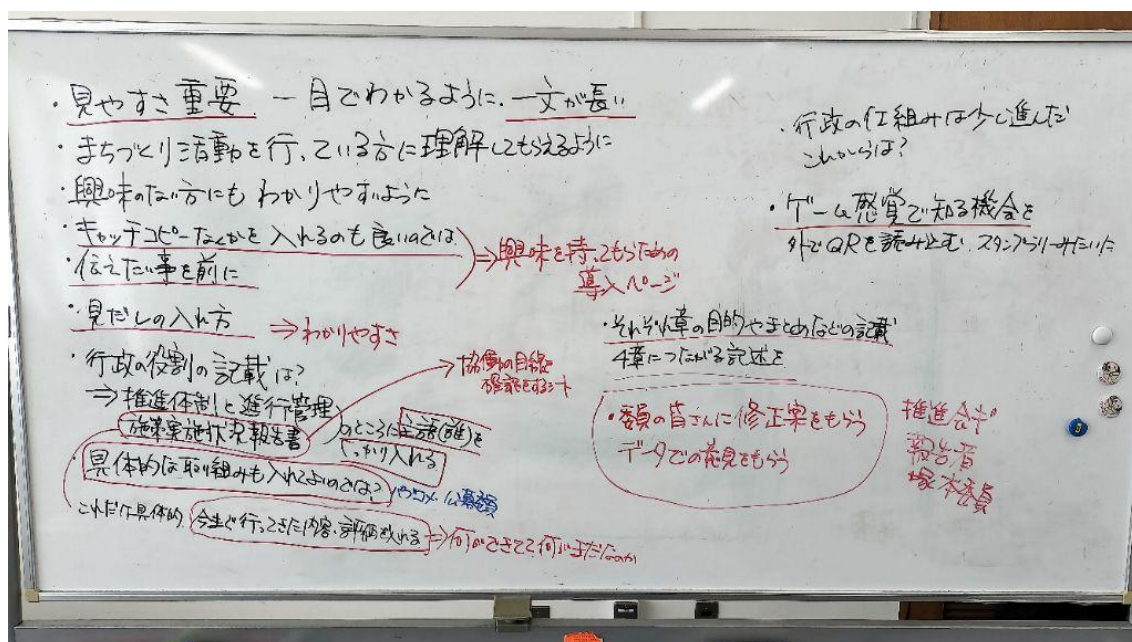 ・見やすさ重要 一目でわかるように、一文が長い
・まちづくり活動を行っている方に理解してもらえるように
・興味のない方にもわかりやすいように
・キャッチコピーなんかを入れるのも良いのでは
・伝えたい事を前に
⇒興味を持ってもらための
導入ページ
・見だしの入れ方 ⇒わかりやすさ
・行政の役割の記載は?
⇒推進体制と進行管理
施策実施状況報告書
のところに主語(誰)を
しっかり入れる
→協働の目線を
確認をするシート
・具体的な取り組みも入れてよいのでは?
パブコメ 公募委員
これだけ具体的
今まで行ってきた内容、評価を入れる ⇒何ができてて何がまだなのか
・行政の仕組みは少し進んだ
これからは?
・ゲーム感覚で知る機会を
外でQRを読み込む、スタンプラリーみたいに
・それぞれ章の目的やまとめなどの記載
4章につながる記述を
・委員の皆さんに修正案をもらう
データでの意見をもらう
推進会ギ
報告者
塚本委員